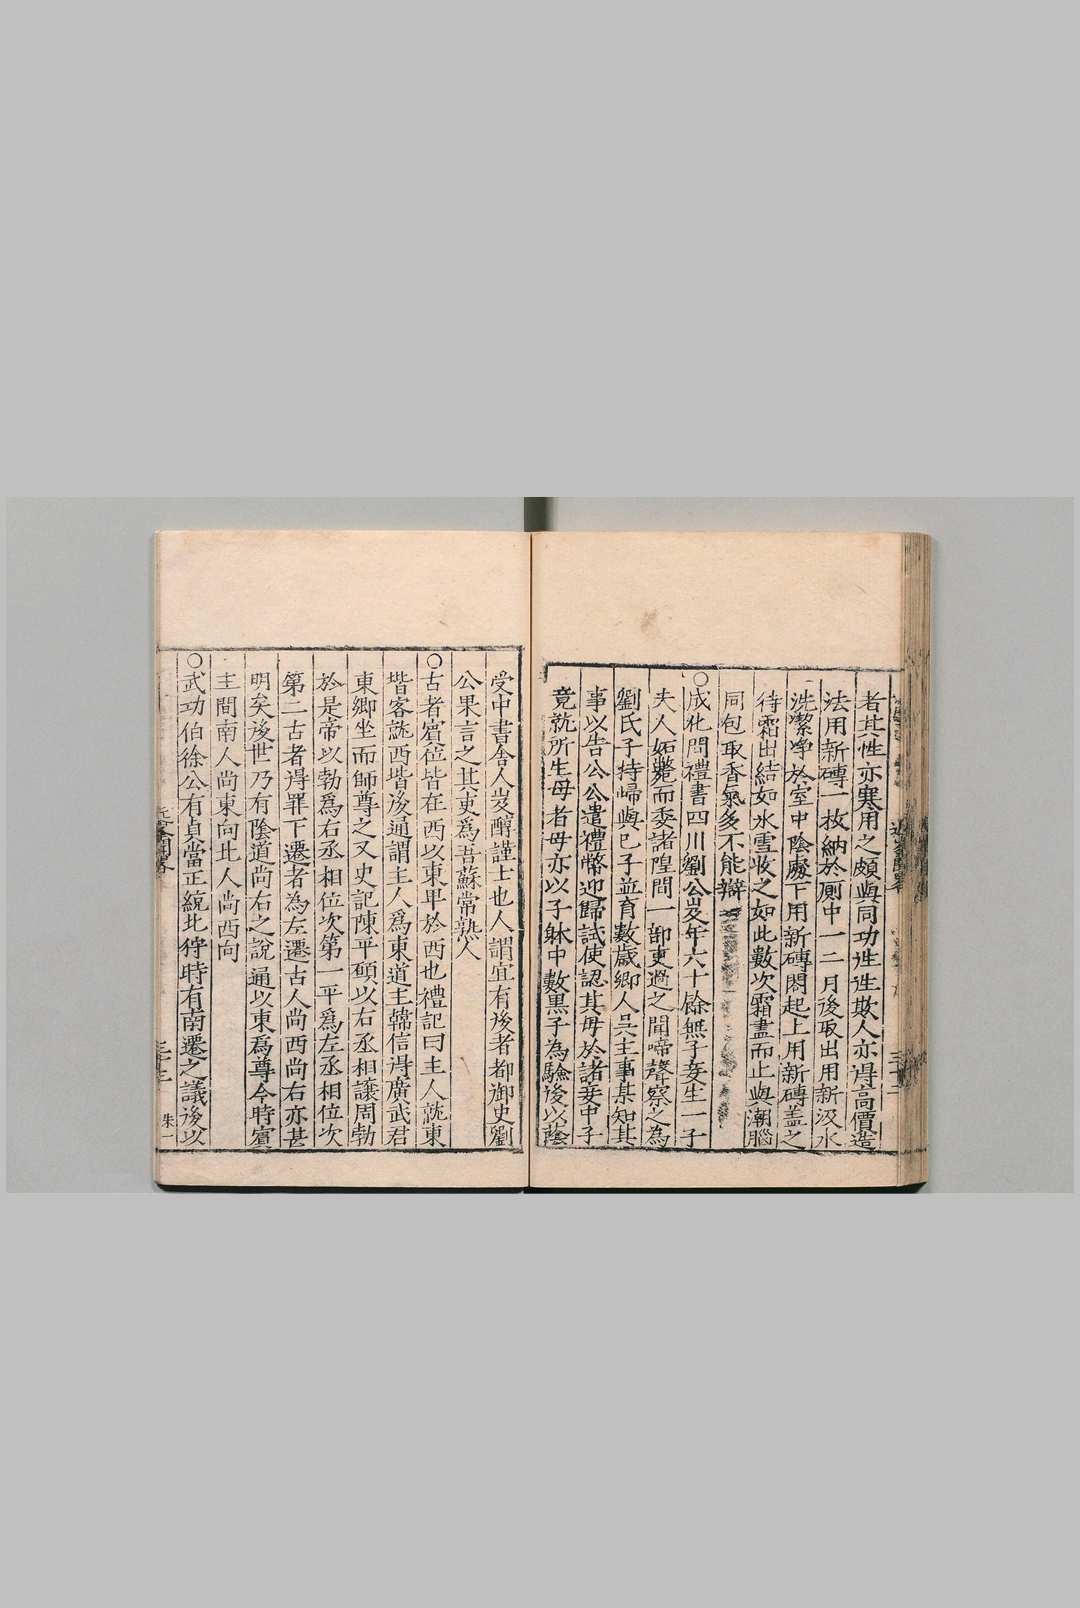 者其性亦寒用之頗與同功徃徃欺人亦得高價造
法用新磚一枚納於厠中一二月後取出用新汲水
洗潔净於室中陰處下用新磚閣起上用新磚盖之
待霜出結如氷雪收之如此數次霜盡而止與潮腦
同包取香氣多不能辯
○成化間禮書四川劉公年六十餘無子妾生一子
夫人妬斃而委諸隍間一卸吏過之聞啼聲察之為
劉氏子持歸與巳子並育數歲鄉人吳主事某知其
事以告公公遣禮幣迎歸試使認其母於諸妾中子
竟就所生母者母亦以子躰中數黒子為驗後以蔭
受中書舍人醇謹士也人謂宜有後者都御史劉
公果言之其吏爲吾蘇常熟人
○古者賓位皆在西以東卑於西也禮記曰主人就東
堦客就西堦後通謂主人爲東道主韓信得廣武君
東鄉坐而師尊之又史記陳平碩以右丞相讓周勃
於是帝以勃爲右丞相位次第一平爲左丞相位次
第二古者得罪下遷者為左遷古人尚西尚右亦甚
明矣後世乃有陰道尚右之說通以東爲尊今時賓
主間南人尚東向北人尚西向
○武功伯徐公有貞當正統北狩時有南遷之議後以
三十三
朱一